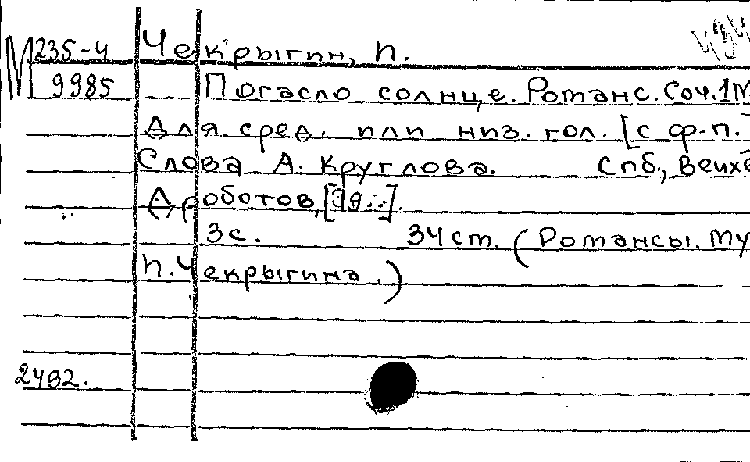 М 235-4 Чекрыгин, П.
9985 Погасло солнце. Романс. Соч. 1 N
Для сред. или низ. гол. [с ф.-п.
Слова А. Круглова. Спб., Вейхе
Дроботов, [19..].
3с. 34 ст. (Романсы. Му
П. Чекрыгина.)
2482.